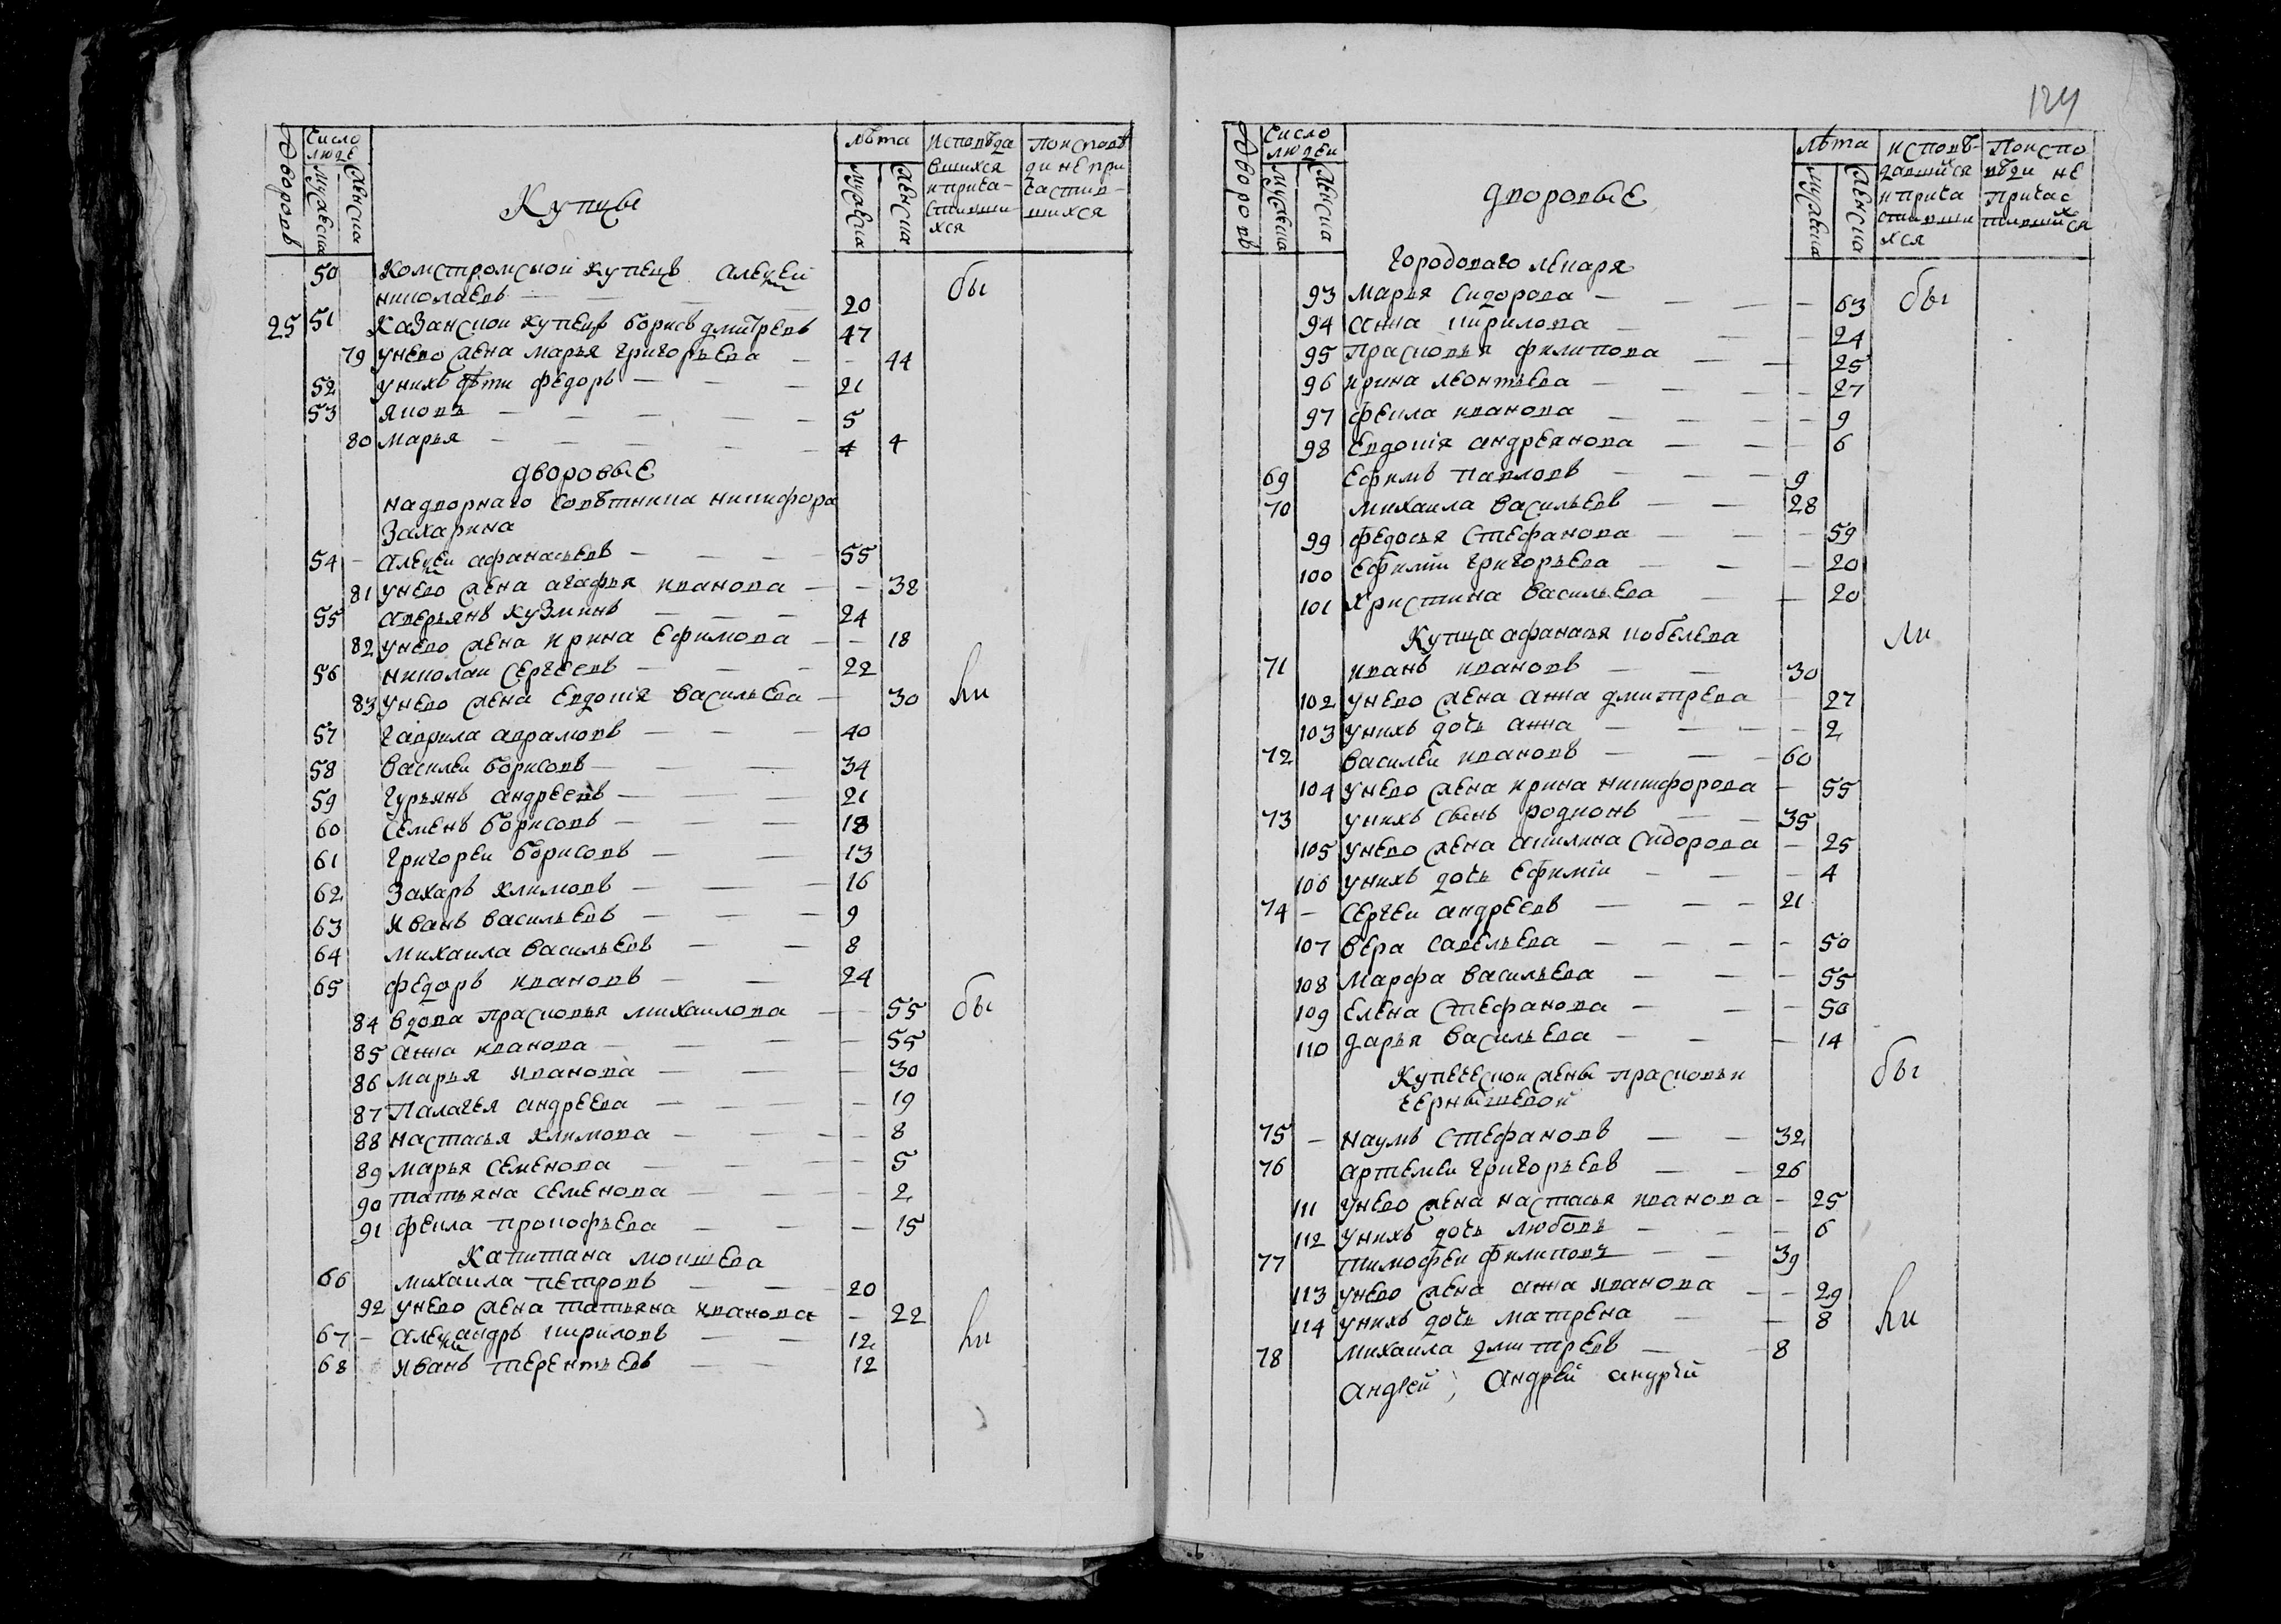 124
Дворовъ Число людей мужеска женска Купцы лѣта мужеска женска исповѣдавшихся и причастившихся По исповѣди не причастившихся
50 Комстромской купецъ Алексей
николаевъ — 20 бы
25 51 Казанской купецъ борисъ дмитревъ 47
79 унево жена марья григорьева — 44
52 унихъ дѣти федоръ — 21
53 яковъ — 5
80 марья — 4 4
дворовые
надворнаго совѣтника никифора
Захарина
54 — алексеи афанасьевъ — 55
81 унево жена агафья иванова — 38
55 аверьянъ кузминъ — 24
82 унево жена ирина Ефимова — 18
56 николаи Сергеевъ — 22
83 унево жена Евдокія васильева — 30 ли
57 гаврила аврамовъ — 40
58 василеи борисовъ — 34
59 гурьянъ андреевъ — 21
60 семенъ борисовъ — 18
61 григореи борисовъ — 13
62 захаръ климовъ — 16
63 иванъ васильевъ — 9
64 михаила васильевъ — 8
65 федоръ ивановъ — 24
84 вдова прасковья михаилова — 55 бы
85 анна иванова — 55
86 марья иванова — 30
87 Палагея андреева — 19
88 настасья климова — 8
89 марья семенова — 5
90 татьяна семенова — 2
91 фекла прокофьева — 15
Капитана
66 михаила петровъ — 20
92 унево жена татьяна иванова — 22
67 — александръ кириловъ — 12 ли
68 иванъ терентьевъ — 12
Дворовъ Число людеи мужеска женска дворовые лѣта мужеска женска исповѣдавшийхся и причастившихся По исповѣди не причастившийхся
городоваго лекаря
93 марья Сидорова — 63 бы
94 анна кирилова — 24
95 прасковья филипова — 25
96 ирина леонтьева — 27
97 фекла иванова — 9
98 Евдокія андреянова — 6
69 Ефимъ павловъ — 9
70 михаила васильевъ — 28
99 федосья Стефанова — 59
100 Ефимии григорьева — 20
101 христина васильева — 20
Купца афанасья кобелева ли
71 иванъ ивановъ — 30
102 унево жена анна дмитрева — 27
103 унихъ дочь анна — 2
72 василеи ивановъ — 60
104 унево жена ирина никифорова — 55
73 унихъ сынъ родионъ — 35
105 унево жена акилина сидорова — 25
106 унихъ дочь Ефимии — 4
74 — Сергеи андреевъ — 21
107 вера савельева — 50
108 марфа васильева — 55
109 Елена Стефанова — 50
110 дарья васильева — 14
Купеческои жены прасковьи бы
чернышевой
75 — наумъ стефановъ — 32
76 артемеи григорьевъ — 26
111 унево жена настасья иванова — 25
112 унихъ дочь любовь — 6
77 тимофеи филиповъ — 39
113 унево жена анна иванова — 29
114 унихъ дочь матрена — 8 ли
78 михаила дмитревъ — 8
андрей, Андрей андрей